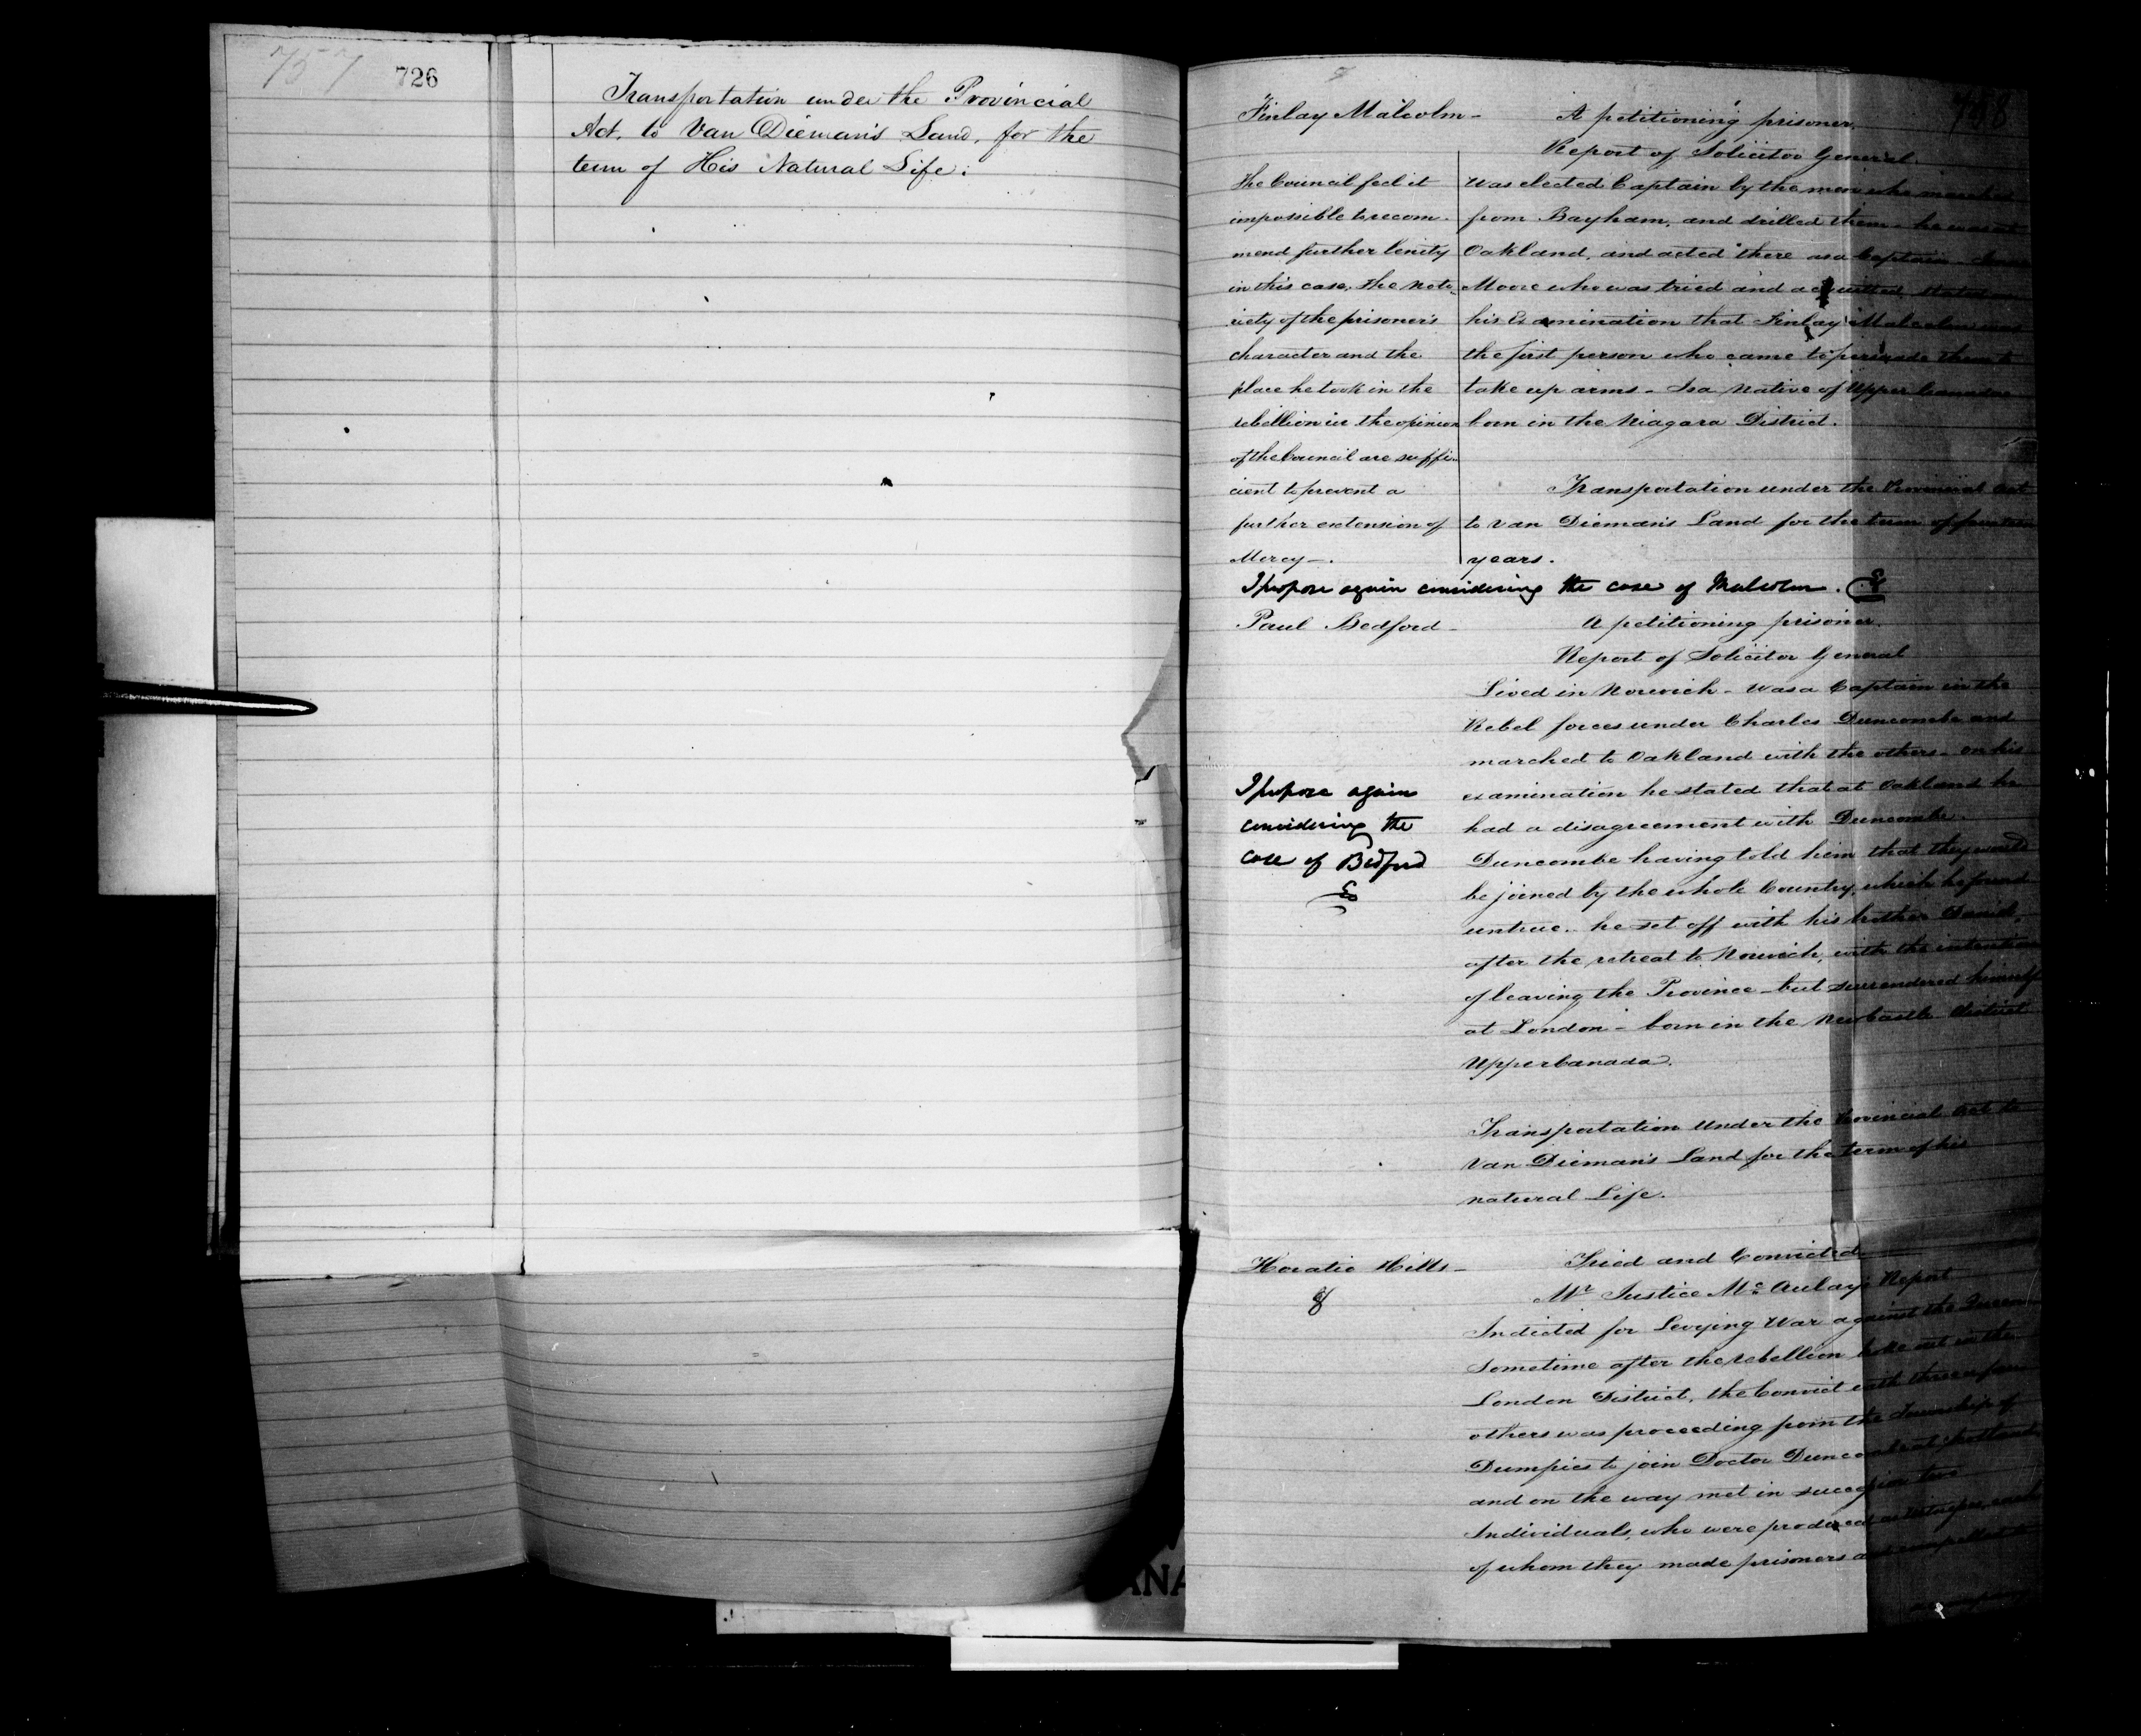 757 726
Transportation under the Provincial
Act, to Van Dieman's Land, for the
term of His Natural Life.
758
Finlay Malcolm - A petitioning prisoner.
Report of Solicitor General.
The Council feel it
impossible to recom-
mend further lenity
in this case, the noto-
riety of the prisoner's
character and the
place he took in the
rebellion in the opinion
of the Council are suffi-
cient to prevent a
further extension of
Mercy -.
Was elected Captain by the men who marched
from Bayham, and drilled them - he was at
Oakland, and acted there as a Captain -
Moore who was tried and acquitted stated in
his Examination that Finlay Malcolm was
the first person who came to persuade them to
take up arms - Is a native of Upper Canada
born in the Niagara District.
Transportation under the Provincial Act
to Van Dieman's Land for the term of fourteen
years.
I propose again considering the case of Malcolm.
Paul Bedford - A petitioning prisoner.
Report of Solicitor General
Lived in Norwich - was a Captain in the
Rebel forces under Charles Duncombe and
marched to Oakland with the others - on his
examination he stated that at Oakland he
had a disagreement with Duncombe.
Duncombe having told him that they would
be joined by the whole Country, which he found
untrue. he set off with his brother David,
after the retreat to Norwich, with the intention
of leaving the Province - but surrendered himself
at London - born in the Newcastle District
Upper Canada.
I propose again
considering the
case of Bedford
Transportation Under the Provincial Act to
Van Dieman's Land for the term of his
natural Life.
Horatio Hills - Tried and Convicted
8
Mr Justice McAulay's Report
Indicted for Levying War against the Queen
Sometime after the rebellion broke out in the
London District, the Convict with three or four
others was proceeding from the Township of
Dumfries to join Doctor Duncombe at Scotland
and on the way met in succession two
Individuals, who were produced as Witnesses, each
of whom they made prisoners and compelled